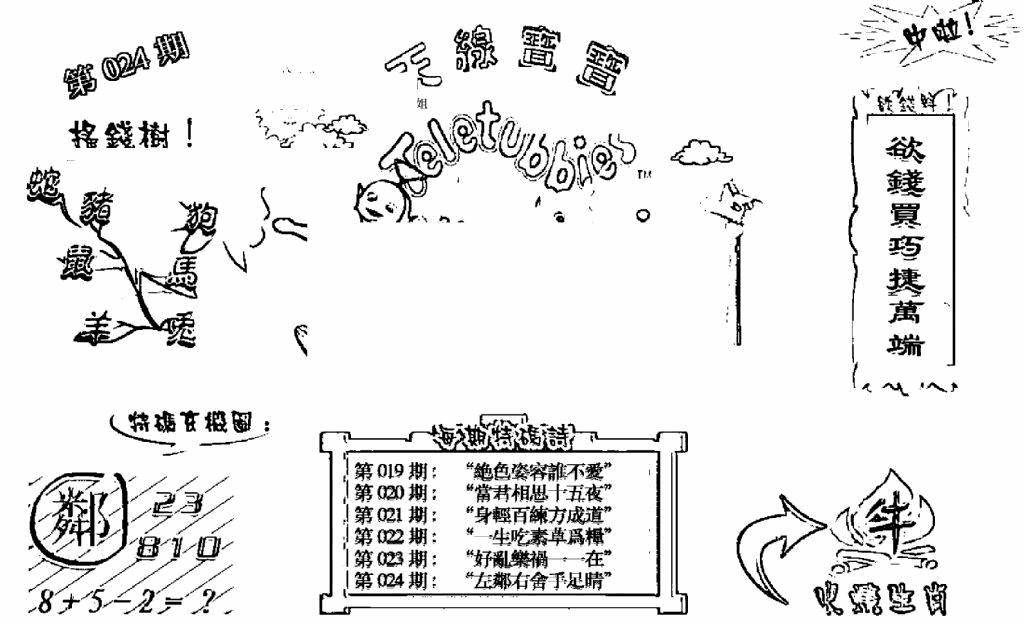 第 024 期
天線寶寶
中啦!
姐
Teletubbies
TM
搖錢樹!
蛇
豬
狗
鼠
馬
羊
兎
搖錢樹!
欲錢買巧捷萬端
特碼玄機圖:
鄰
23
810
8+5-2=?
每期特碼詩
第 019 期: “絶色姿容誰不愛”
第 020 期: “當君相思十五夜”
第 021 期: “身輕百練方成道”
第 022 期: “一生吃素草爲糧”
第 023 期: “好亂樂禍一一在”
第 024 期: “左鄰右舍手足睛”
牛
火燒生肖